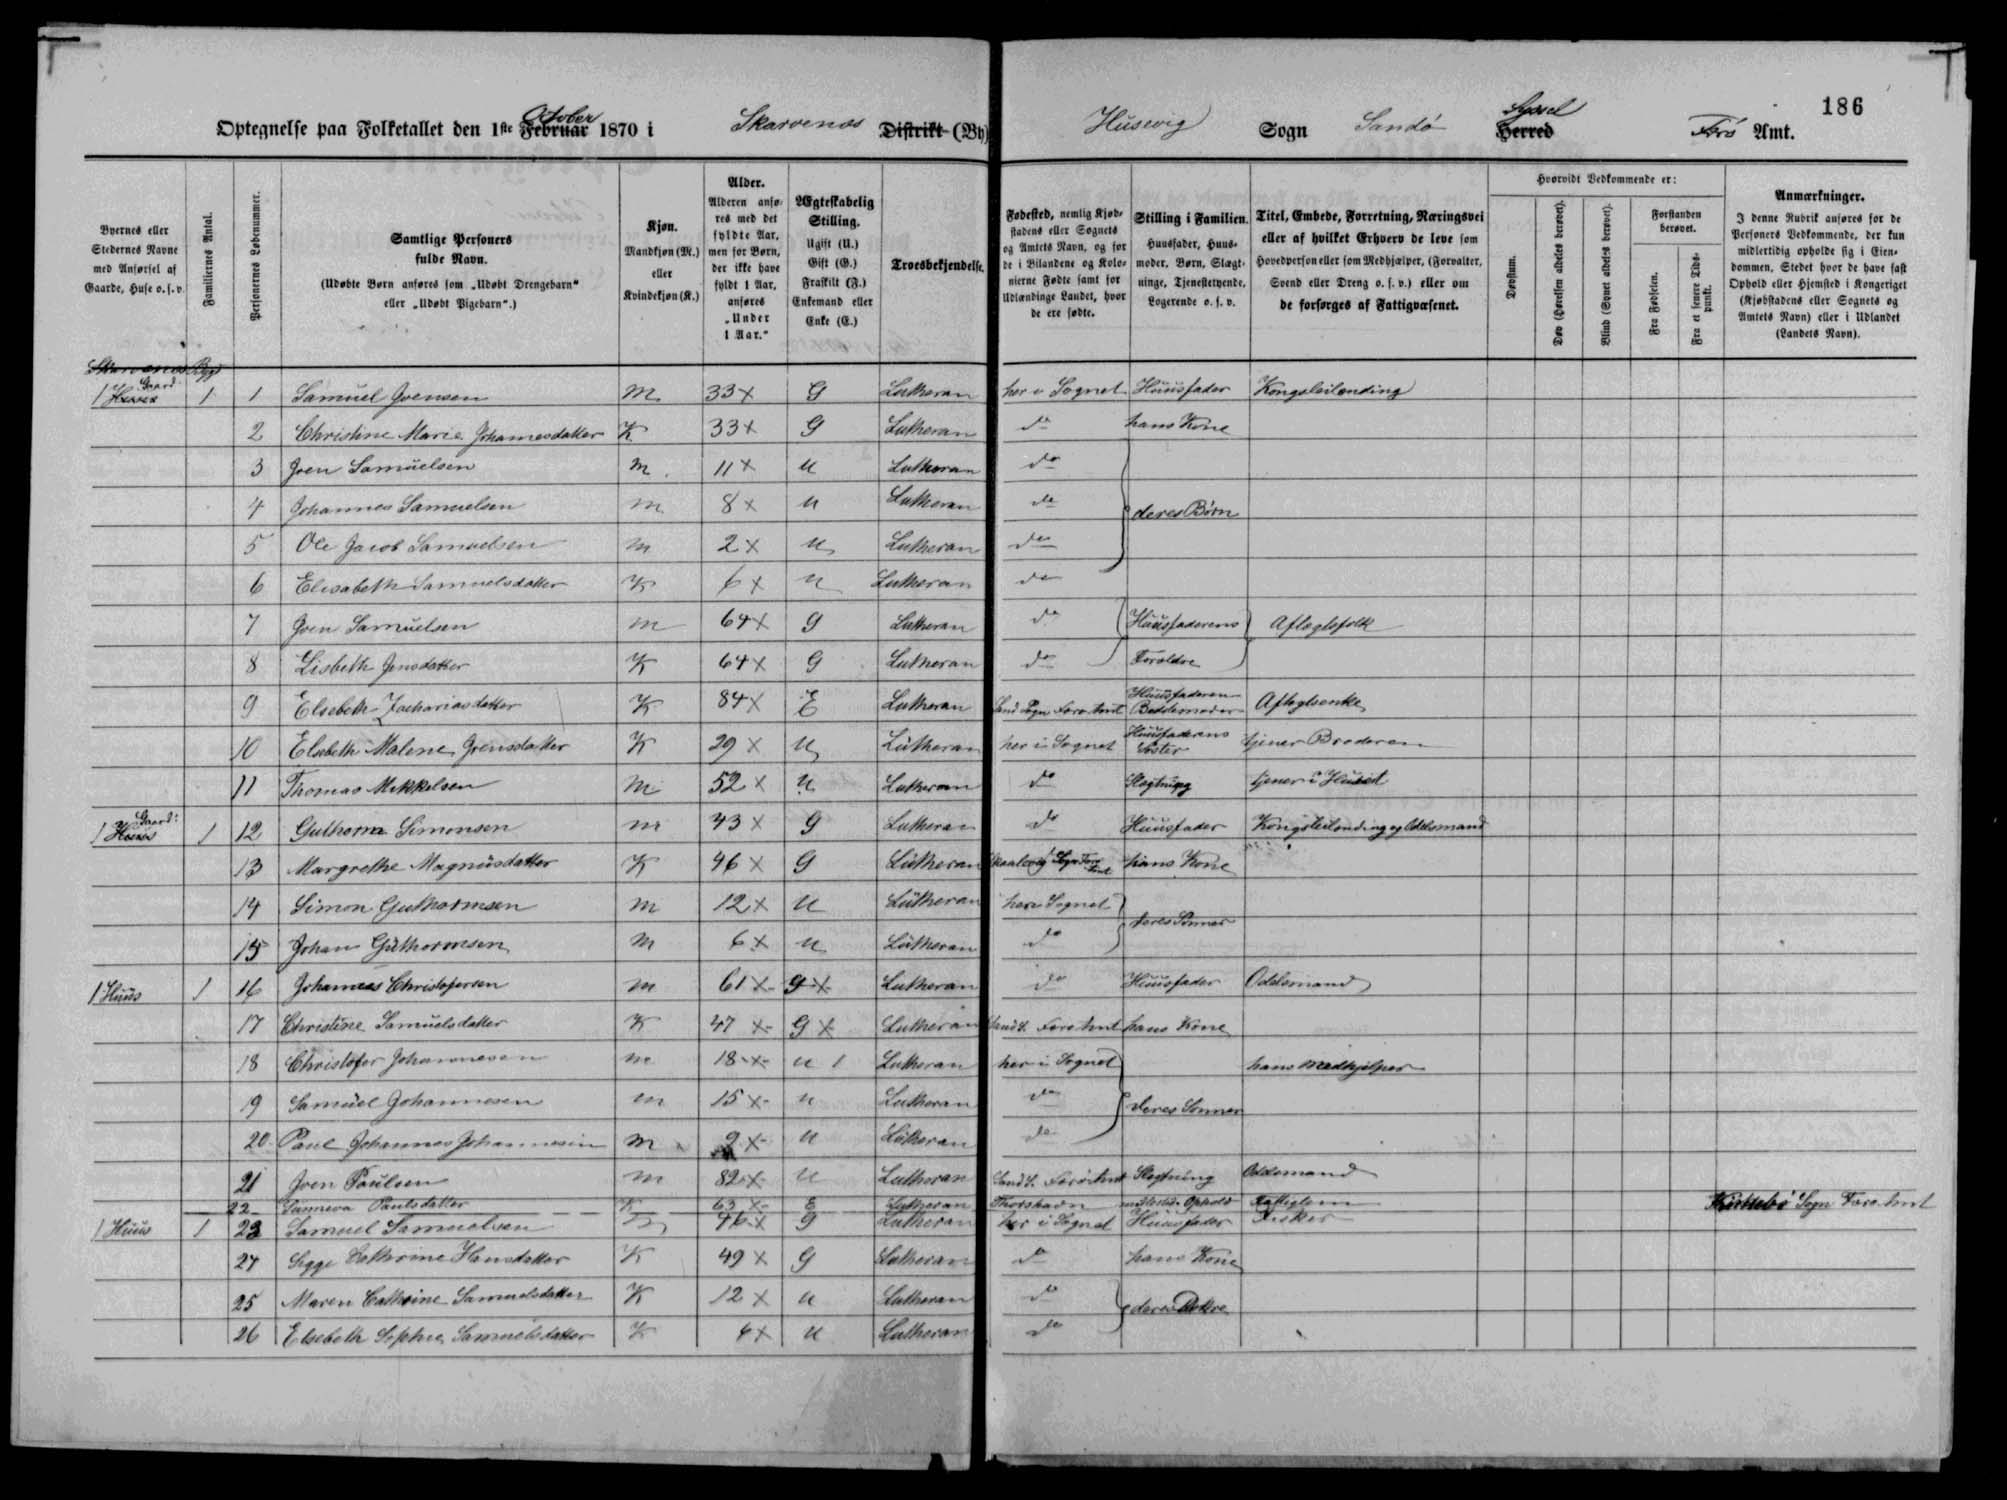 186
Optegnelse paa Folketallet den 1ste Februar October 1870 i Skarvenæs Distrikt (By) Husevig Sogn Sandø Herred Syssel Færø Amt.
Byernes eller Stedernes Navne med Anførsel af Gaarde, Huse o. s. v.
Familiernes Antal.
Personernes Løbenummer.
Samtlige Personers fulde Navn. (Udøbte Børn anføres som „Udøbt Drengebarn“ eller „Udøbt Pigebarn“.)
Kjøn. Mandkjøn (M.) eller Kvindekjøn (K.)
Alder. Alderen anføres med det fyldte Aar, men for Børn, der ikke have fyldt 1 Aar, anføres „Under 1 Aar.“
Ægteskabelig Stilling. Ugift (U.) Gift (G.) Fraskilt (F.) Enkemand eller Enke (E.)
Troesbekjendelse.
Fødested, nemlig Kjøbstadens eller Sognets og Amtets Navn, og for de i Bilandene og Kolonierne Fødte samt for Udlændinge Landet, hvor de ere fødte.
Stilling i Familien. Huusfader, Huusmoder, Børn, Slægtninge, Tjenestetyende, Logerende o. s. v.
Titel, Embede, Forretning, Næringsvei eller af hvilket Erhverv de leve som Hovedperson eller som Medhjælper, (Forvalter, Svend eller Dreng o. s. v.) eller om de forsørges af Fattigvæsenet.
Hvorvidt Vedkommende er:
Døvstum.
Døv (Hørelsen aldeles berøvet).
Blind (Synet aldeles berøvet).
Forstanden berøvet.
Fra Fødselen.
Fra et senere Tidspunkt.
Anmærkninger. I denne Rubrik anføres for de Personers Vedkommende, der kun midlertidig opholde sig i Eiendommen, Stedet hvor de have fast Ophold eller Hjemsted i Kongeriget (Kjøbstadens eller Sognets og Amtets Navn) eller i Udlandet (Landets Navn).
Skarvenæs Bygd
1 Huus Gaard 1 1 Samuel Joensen M 33 x G Lutheran her i Sognet Huusfader Kongsleilending
2 Christine Marie Johannesdatter K 33 x G Lutheran do hans Kone
3 Joen Samuelsen M 11 x U Lutheran do
4 Johannes Samuelsen M 8 x U Lutheran do deres Børn
5 Ole Jacob Samuelsen M 2 x U Lutheran do
6 Elisabeth Samuelsdatter K 6 x U Lutheran do
7 Joen Samuelsen M 64 x G Lutheran do Huusfaderens Aflægtsfolk
8 Lisbeth Jensdatter K 64 x G Lutheran do Forældre
9 Elsebeth Zachariasdatter K 84 x E Lutheran Sand Sogn Færø Amt Huusfaderen Bedstemoder Aflægtsenke
10 Elsebeth Malene Joensdatter K 29 x U Lutheran her i Sognet Huusfaderens Søster tjener Broderen
11 Thomas Mikkelsen M 52 x U Lutheran do Slægtning tjener i Huset
1 Huus Gaard: 1 12 Guthorm Simonsen M 43 x G Lutheran do Huusfader Kongsleilending og Odelsmand
13 Margrethe Magnusdatter K 46 x G Lutheran Skaalevig Sogn Færø Amt hans Kone
14 Simon Guthormsen M 12 x U Lutheran her i Sognet
15 Johan Guthormsen M 6 x U Lutheran do deres Sønner
1 Huus 1 16 Johannes Christofersen M 61 x G x Lutheran do Huusfader Odelsmand
17 Christine Samuelsdatter K 47 x G x Lutheran Sand S. Færø Amt hans Kone
18 Christofer Johannesen M 18 x U 1 Lutheran her i Sognet hans Medhjelper
19 Samuel Johannesen M 15 x U Lutheran do deres Sønner
20 Paul Johannes Johannesen M 9 x U Lutheran do
21 Joen Paulsen M 82 x U Lutheran Sand S. Færø Amt Slægtning Odelsmand
22 Sunneva Paulsdatter K 63 x E Lutheran Thorshavn midlertidigt Ophold Fattiglem Kirkebø Sogn Færø Amt
1 Huus 1 23 Samuel Samuelsen M 46 x G Lutheran her i Sognet Huusfader Fisker
24 Sigge Cathrine Hansdatter K 49 x G Lutheran do hans Kone
25 Maren Cathrine Samuelsdatter K 12 x U Lutheran do deres Døttre
26 Elsebeth Sophie Samuelsdatter K 6 x U Lutheran do